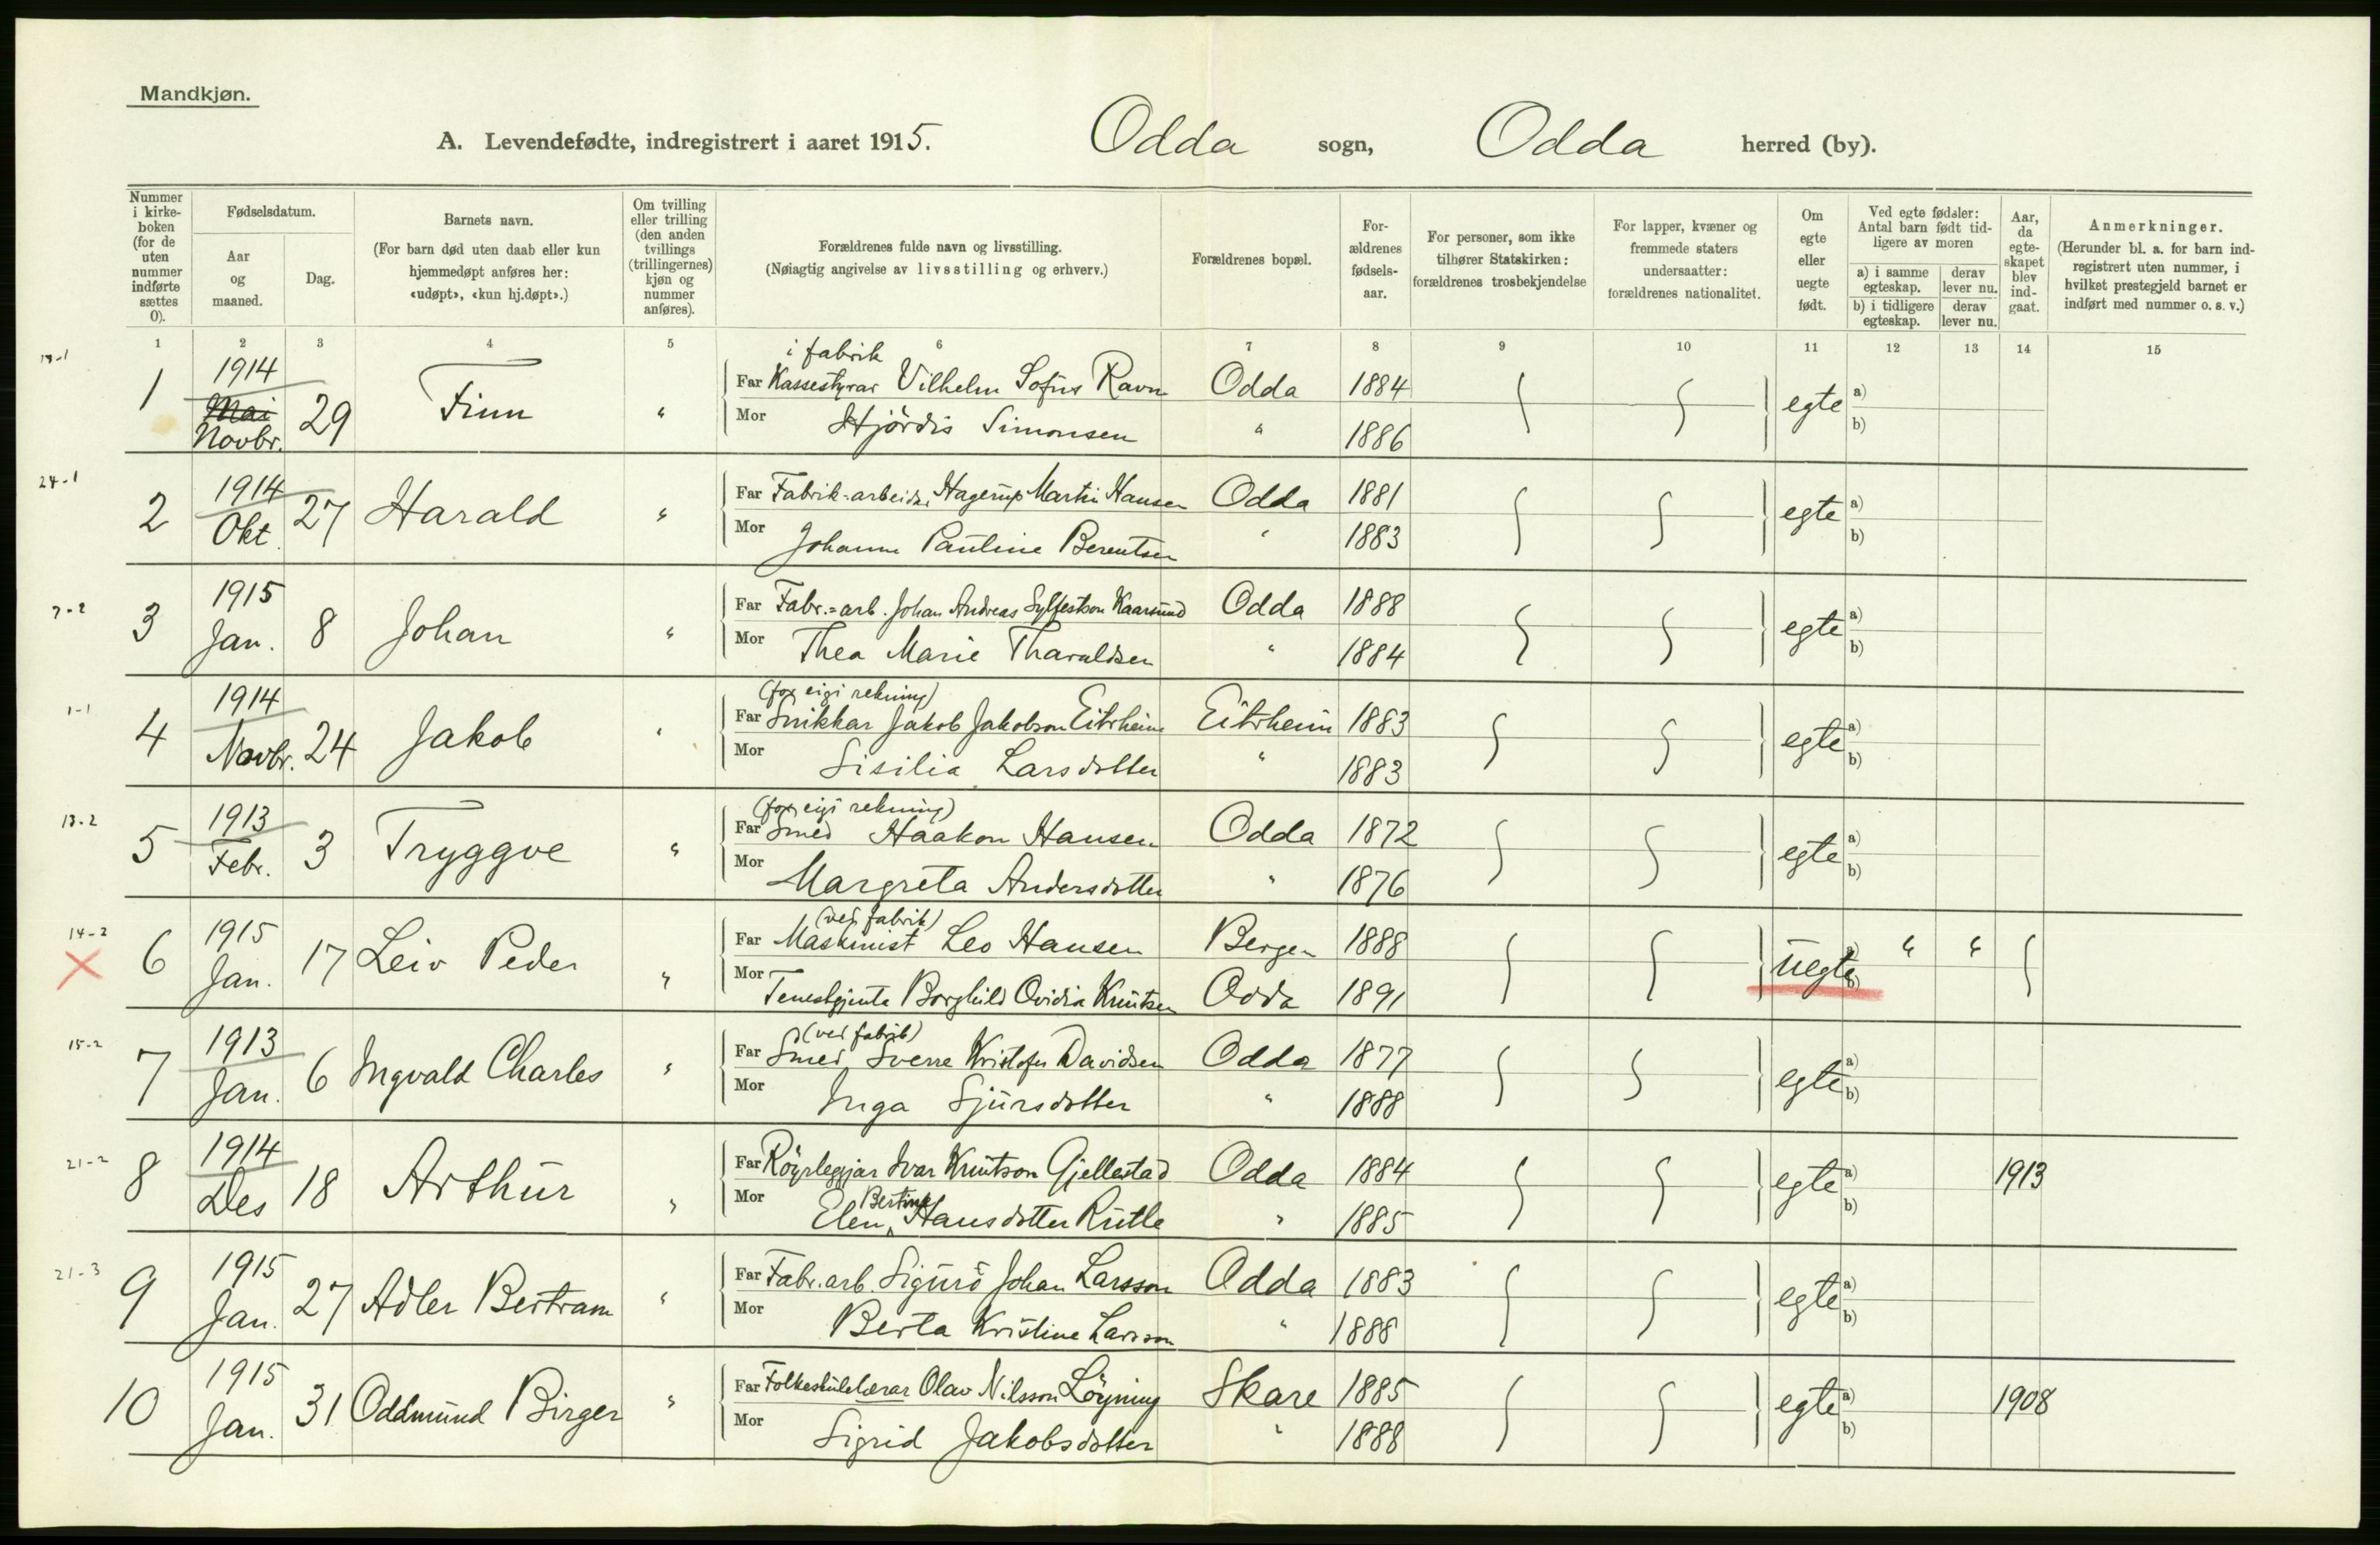 Mandkjøn.
A. Levendefødte, indregistrert i aaret 1915. Odda sogn, Odda herred (by).
Nummer i kirke- boken (for de uten nummer indførte sættes 0).
Fødselsdatum.
Aar og maaned.
Dag.
Barnets navn.
(For barn død uten daab eller kun hjemmedøpt anføres her: «udøpt», «kun hj.døpt».)
Om tvilling eller trilling (den anden tvillings (trillingernes) kjøn og nummer anføres).
Forældrenes fulde navn og livsstilling.
(Nøiagtig angivelse av livsstilling og erhverv.)
Forældrenes bopæl.
For- ældrenes fødsels- aar.
For personer, som ikke tilhører Statskirken: forældrenes trosbekjendelse
For lapper, kvæner og fremmede staters undersaatter: forældrenes nationalitet.
Om egte eller uegte født.
Ved egte fødsler: Antal barn født tid- ligere av moren
a) i samme egteskap.
derav lever nu.
b) i tidligere egteskap.
derav lever nu.
Aar, da egte- skapet blev ind- gaat.
Anmerkninger.
(Herunder bl. a. for barn ind- registrert uten nummer, i hvilket prestegjeld barnet er indført med nummer o. s. v.)
1 2 3 4 5 6 7 8 9 10 11 12 13 14 15
1 1914 Mai Novbr. 29 Finn "
i fabrik
Far Kassestyrar Vilhelm Sofus Ravn Odda 1884 egte a)
Mor Hjördis Simonsen " 1886 b)
24-1
2 1914 Okt. 27 Harald "
Far Fabrik-arbeidar Hagerup Martin Hansen Odda 1881 egte a)
Mor Johanne Pauline Berentsen " 1883 b)
7-2
3 1915 Jan. 8 Johan "
Far Fabr.=arb. Johan Andreas Sylfestson Kaarsund Odda 1888 egte a)
Mor Thea Marie Tharaldsen " 1884 b)
1-1
4 1914 Novbr. 24 Jakob "
(for eigi rekning)
Far Snikkar Jakob Jakobson Eitrheim Eitrheim 1883 egte a)
Mor Sisilia Larsdotter " 1883 b)
13-2
5 1913 Febr. 3 Tryggve "
(for eigi rekning)
Far Smed Haakon Hansen Odda 1872 egte a)
Mor Margreta Andersdotter " 1876 b)
14-2
6 1915 Jan. 17 Leiv Peder "
(ved fabrik)
Far Maskinist Leo Hansen Bergen 1888 uegte a) " "
Mor Tenestgjenta Borghild Ovidia Knutsen Odda 1891 b)
15-2
7 1913 Jan. 6 Ingvald Charles "
(ved fabrik)
Far Smed Sverre Kristofer Davidsen Odda 1877 egte a)
Mor Inga Sjursdotter " 1888 b)
21-2
8 1914 Des 18 Arthur "
Far Röyrleggjar Ivar Knutson Gjellestad Odda 1884 egte a) 1913
Mor Elen Bertine Hansdotter Rutle " 1885 b)
21-3
9 1915 Jan. 27 Adler Bertram "
Far Fabr. arb. Sigurd Johan Larsson Odda 1883 egte a)
Mor Berta Kristine Larsson " 1888 b)
10 1915 Jan. 31 Oddmund Birger "
Far Folkeskulelærar Olav Nilsson Löyning Skare 1885 egte a) 1908
Mor Sigrid Jakobsdotter " 1888 b)